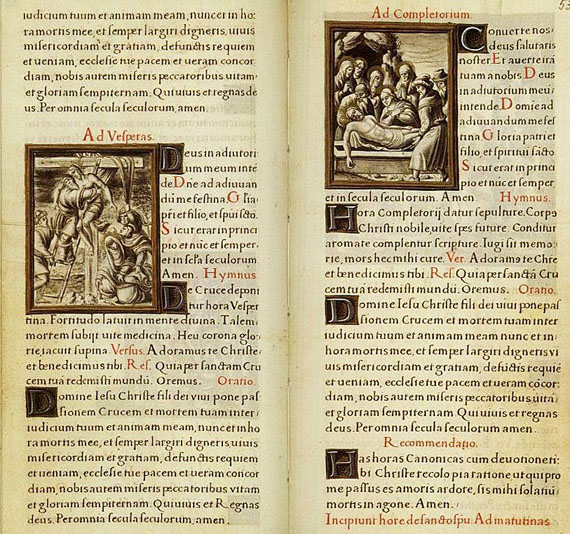 iudicium tuum et animam meam, nunc et in ho:
ra mortis meę, et semper largiri digneris, uiuis
misericordiam et gratiam, defunctis requiem
et ueniam, ecclesię tuę pacem et ueram concor
diam, nobis autem miseris peccatoribus uitam
et gloriam sempiternam. Qui uiuis et regnas de
us. Per omnia secula seculorum, amen.
Ad Vesperas.
Deus in adiutori
um meum inte
de Dñe ad adiuuan
dũ me festina. Glia
pri et filio, et spui scto.
Sicut erat in princi
pio et nũc et semper,
et in secla seculorum.
Amen. Hymnus.
De Cruce deponi
tur hora Vesper
tina. Fortitudo latuit in mente diuina. Talem
mortem subijt uitę medicina. Heu corona glo:
rię iacuit supina. Versus. Adoramus te Christe
et benedicimus tibi. Res. Quia per sanctam Cru
cem tuã redemisti mundũ. Oremus. Oratio.
Domine Iesu Christe fili dei uiui pone pas/
sionem Crucem et mortem tuam inter
iudicium tuum et animam meam, nunc et in ho
ra mortis meę, et semper largiri digneris uiuis
misericordiam et gratiam, defunctis requiem
et ueniam, ecclesię tuę pacem et ueram concor
diam, nobis autem miseris peccatoribus uitam
et gloriam sempiternam. Qui uiuis et Regnas
deus. Per omnia secula seculorum, amen.
53
Ad Completorium.
Conuerte nos
deus salutaris
noster Et auerte irã
tuam a nobis Deus
in adiutorium meũ
intende Domie ad
adiuuandum me fes
tina Gloria patri et
filio, et spiritui sãcto.
Sicut erat in princi
pio et nũc et semper,
et in secula seculorum. Amen Hymnus.
Hora Completorij datur sepulturę. Corpo
Christi nobile, uitę spes futurę. Conditur
aromate complentur scripturę. Iugi sit memo
rię, mors hęc mihi curę. Ver. Adoramo te Chre
et benedicimus tibi. Res. Quia per sanctã Cru
cem tuã redemisti mundũ. Oremus. Oratio.
Domine Iesu Christe fili dei uiui pone pas
sionem Crucem et mortem tuam inter
iudicium tuum et animam meam nunc et in
hora mortis meę, et semper largiri digneris ui
uis misericordiam et gratiam, defũctis requiẽ
et ueniam, ecclesię tuę pacem et ueram cõcor:
diam, nobis autem miseris peccatoribus uitã
et gloriam sempiternam. Qui uiuis et regnas
deus. Per omnia secula seculorum amen.
Recommendatio.
Has horas Canonicas cum deuotione ti:
bi Christe recolo pia ratione, ut qui pro
me passus es amoris ardore, sis mihi solatiũ
mortis in agone. Amen.
Incipiunt horę de sancto spũ Ad matutinas